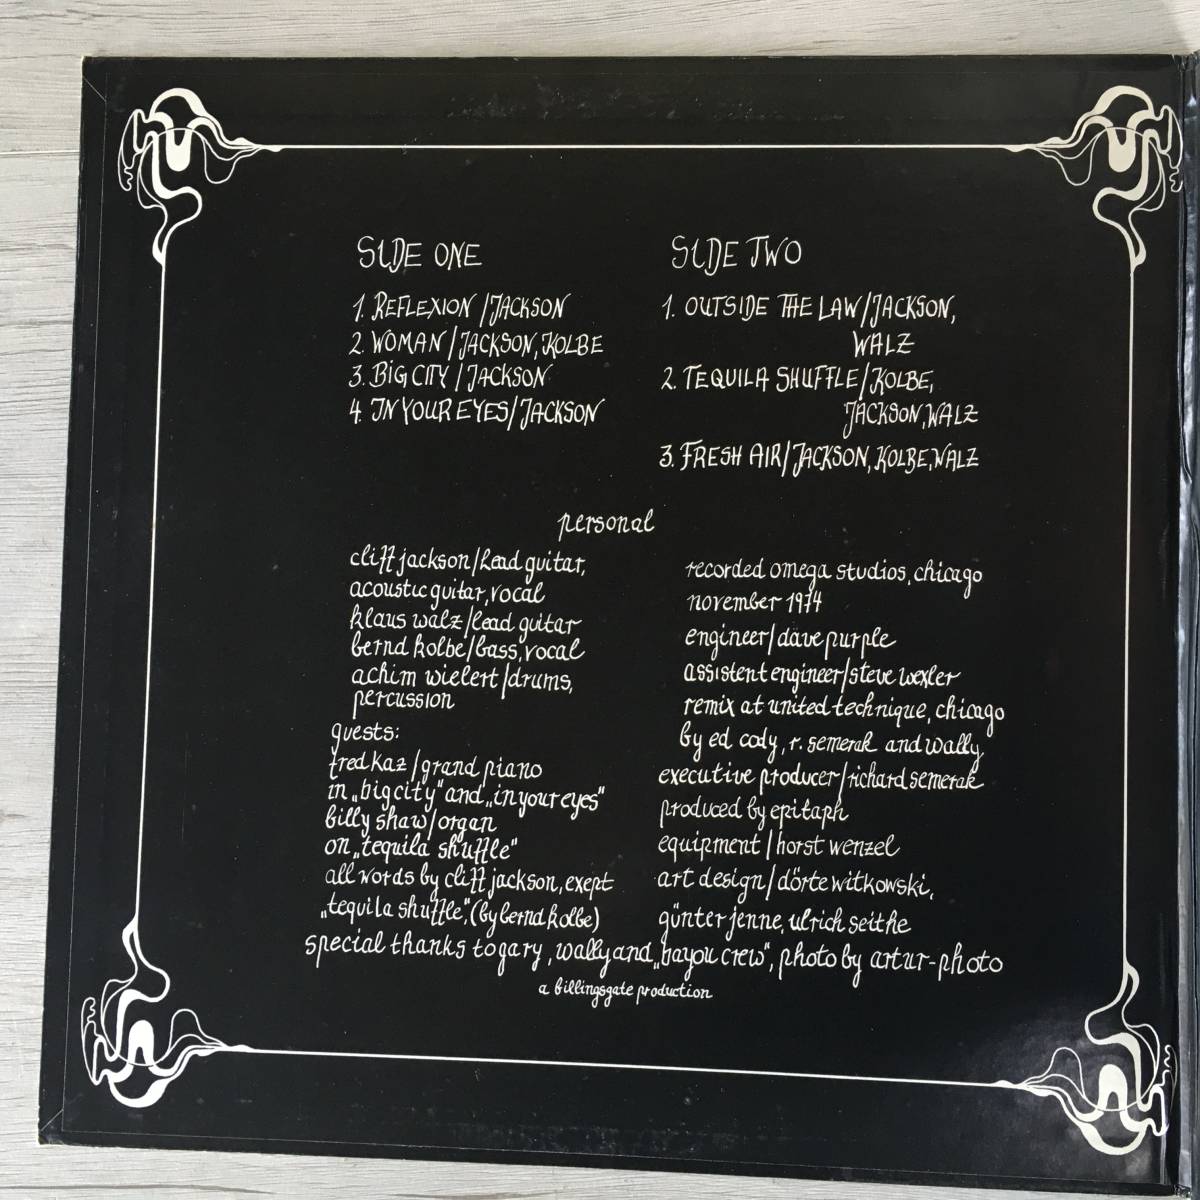 SIDE ONE
1. REFLEXION/JACKSON
2. WOMAN/JACKSON, KOLBE
3. BIG CITY/JACKSON
4. IN YOUR EYES/JACKSON
SIDE TWO
1. OUTSIDE THE LAW/JACKSON,
WALZ
2. TEQUILA SHUFFLE/KOLBE,
JACKSON, WALZ
3. FRESH AIR/JACKSON, KOLBE, WALZ
personal
cliff jackson/lead guitar,
acoustic guitar, vocal
klaus walz/lead guitar
bernd kolbe/bass, vocal
achim wielert/drums,
percussion
guests:
fred kaz/grand piano
in „big city“ and „in your eyes“
billy shaw/organ
on „tequila shuffle“
all words by cliff jackson, exept
„tequila shuffle“, (by bernd kolbe)
recorded omega studios, chicago
november 1974
engineer/dave purple
assistent engineer/steve wexler
remix at united technique, chicago
by ed cody, r. semerak and wally
executive producer/richard semerak
produced by epitaph
equipment/horst wenzel
art design/dörte witkowski,
günter jenne, ulrich seithe
special thanks to gary, wally and „bayou crew“, photo by artur-photo
a billingsgate production